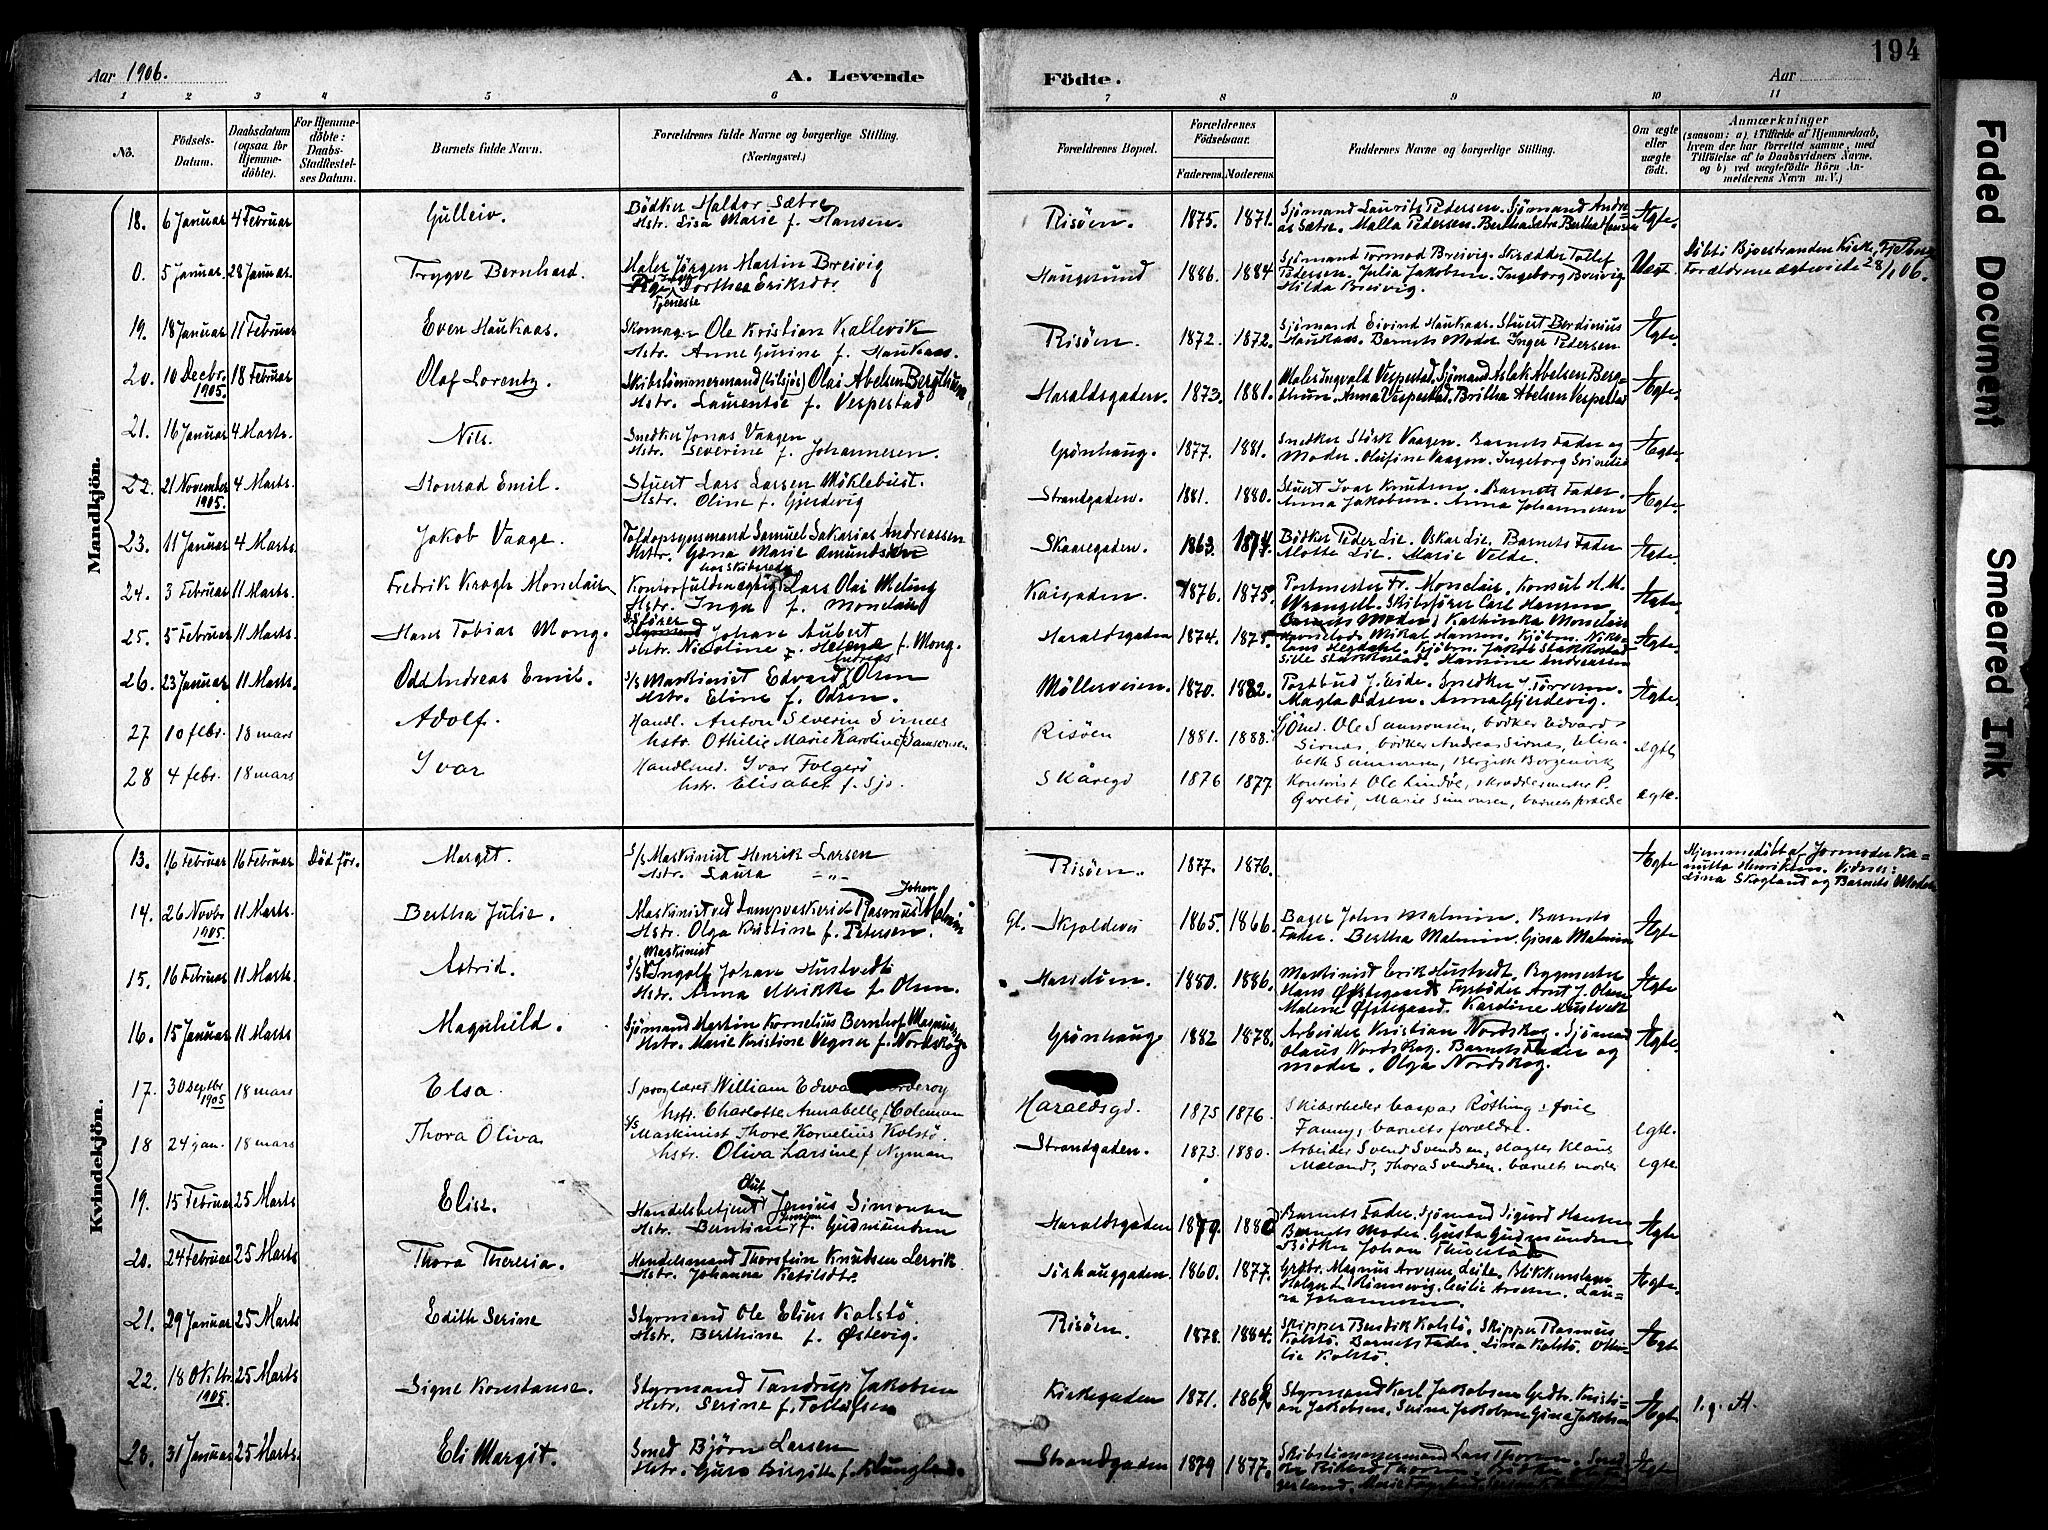 194
Aar 1906.
A. Levende
Födte.
Aar
1 2 3 4 5 6 7 8 9 10 11
No.
Födsels-
Datum.
Daabsdatum
(ogsaa for
Hjemme-
döbte).
For Hjemme-
döbte:
Daabs-
Stadfæstel-
ses Datum.
Barnets fulde Navn.
Forældrenes fulde Navne og borgerlige Stilling.
(Næringsvei.)
Forældrenes Bopæl.
Forældrenes
Födselsaar.
Faderens. Moderens.
Faddernes Navne og borgerlige Stilling.
Om ægte
eller
uægte
födt.
Anmærkninger
(saasom: a) i Tilfælde af Hjemmedaab,
hvem der har forrettet samme, med
Tilföielse af to Daabsvidners Navne,
og b) ved uægtefödte Börn An-
melderens Navn m. V.)
Mandkjön.
18. 6 Januar 4 Februar Gulleiv. Bödker Haldor Sætre
Hstr. Lisa Marie f. Hansen. Risöen. 1875. 1871. Sjömand Laurits Pedersen. Sjömand Andre-
as Sætre. Malla Pedersen. Bertha Hansen Ægte
0. 5 Januar 28 Januar. Trygve Bernhard. Maler Jörgen Martin Breivig
Pige Dorthea Eriksdtr. Haugesund 1886. 1884 Sjömand Tormod Breivig. Skrædder Tollef
Pedersen. Julia Jakobsen. Ingeborg Breivig
Hilda Breivig. Uægt. Döbt i Kirke,
Forældrene ægteviede 28/1 06.
19. 18 Januar 11 Februar Even Haukaas. Skomager Ole Kristian Kallevik
Hstr. Anne Gurine f. Haukaas. Risöen. 1872. 1872. Sjömand Eivind Haukaas. Stuert Berdinius
Haukaas. Barnets Moder Inger Pedersen Ægte
20. 10 Decbr. 1905. 18 Februar Olaf Lorentz. Skibstömmermand (tilsjös) Olai Abelsen Bergthun,
Hstr. Laurentse f. Vespestad Haraldsgaden. 1873. 1881. Maler Ingvald Vespestad. Sjömand Aslak Abelsen Berg-
thun. Anna Vespestad. Britha Abelsen Vespestad Ægte
21. 16 Januar 4 Marts. Nils. Snedker Jonas Vaagen
Hstr. Severine f. Johannesen. Grönhaug. 1877. 1881. Snedker Störk Vaagen. Barnets Fader og
Moder. Olufine Vaagen. Ingeborg Ægte
22. 21 November 1905. 4 Marts. Konrad Emil. Stuert Lars Larsen Möklebust.
Hstr. Oline f. Gjerdevig Strandgaden. 1881. 1880. Stuert Ivar Knudsen. Barnets Fader.
Anna Jakobsen. Anna Johannesen Ægte
23. 11 Januar 4 Marts. Jakob Vaage. Toldopsynsmand Samuel Sakarias Andreassen
Hstr. Gina Marie Amundsen Skaaregaden. 1863. 1874. Bödker Peder Lie. Oskar Lie. Barnets Fader
Lie. Marie Velde. Ægte
24. 3 Februar 11 Marts. Fredrik Krogh Monclair Kontorfuldmægtig Lars Olai Meling
Hstr. Inga f. Monclair Kaigaden. 1876. 1875. Postmester Fr. Monclair. Konsul H. M.
Wrangell. Skibsförer Carl Hansen.
Barnets Moder, Kathinka Monclair Ægte
25. 5 Februar 11 Marts. Hans Tobias Mong. Johan Aubert
Hstr. Nicoline Helene f. Mong. Haraldsgaden 1874. 1875. Mikal Hansen. Kjöbm. Niko-
laus Hegdahl. Kjöbm. Jakob Stakkestad
Sille Stakkestad. Hansine Andreassen Ægte
26. 23 Januar 11 Marts. Odd Andreas Emil. S/s Maskinist Edvard Andreas Olsen
Hstr. Eline f. Odsen. Möllerveien. 1870. 1882. Postbud J. Eide. Snedker J. Torvesen.
Magla Odsen. Anna Gjerdevig. Ægte
27 10 febr. 18 mars Adolf. Handl. Anton Severin Sirnes
hstr. Othilie Marie Karoline f Samsonsen Risöen 1881. 1888. Sjömd. Ole Samsonsen, bödker Edvard
Sirnes, bödker Andreas Sirnes, Elisa-
beth Samsonsen, Bergith Borgenvik egte
28 4 febr. 18 mars Ivar Handlsmd. Ivar Folgerö
hstr. Elisabet f. Sjo. Skåregd 1876 1877 Kontorist Ole Lindöe, skræddermester P.
Övrebö, Marie Simonsen, barnets forældre egte.
Kvindekjön.
13. 16 Februar 16 Februar Död för. Margit. S/s Maskinist Henrik Larsen
Hstr. Laura -"- Risöen. 1877. 1876. Ægte Hjemmedöbt af Jormoder Ka-
Henriksen. Vidner:
Lina Skogland og Barnets Moder
14. 26 Novbr 1905. 11 Marts. Bertha Julie. Maskinist ved Rasmus Johan Malmin
Hstr. Olga Kristine f. Petersen. Gl. Skjoldevei 1865. 1866. Bager John Malmin. Barnets
Fader. Bertha Malmin. Gina Malmin Ægte
15. 16 Februar 11 Marts. Astrid. S/s Maskinist Ingolf Johan Hustvedt
Hstr. Anna Mikke f. Olsen. Hasseloen. 1880. 1886. Maskinist Erik Hustvedt. Bygmester
Hans Østegaard. Fyrböder Arnt J. Olsen
Malene Østegaard. Karoline Hustvedt Ægte
16. 15 Januar 11 Marts Magnhild. Sjömand Martin Kornelius Bernhof Magnus
Hstr. Marie Kristine Vegner f. Nordskog Grönhaug. 1882 1878. Arbeider Kristian Nordskog. Sjömand
Olaus Nordskog. Barnets Fader og
Moder. Olga Nordskog. Ægte.
17. 30 septbr 1905 18 mars Elsa. Sproglærer William Edward Corderoy
hstr. Charlotte Annabelle, f. Coleman Haraldsgd. 1875 1876. Skibsreder Caspar Röthing & frue
Fanny, barnets forældre. egte.
18 24 jan. 18 mars Thora Oliva S/s Maskinist Thore Kornelius Kolstö.
hstr. Oliva Larsine f Nyman Strandgaden. 1873. 1880. Arbeider Svend Svendsen, slagter Klaus
Mæland, Thora Svendsen. barnets moder egte.
19. 15 Februar 25 Marts Elise. Handelsbetjent Oluf Jenius Simonsen
Hstr. Bentine f. Gudmundsen Haraldsgaden 1879. 1880 Barnets Fader. Sjömand Sigurd Hansen
Barnets Moder. Gusta Gudmundsen
Bödker Johan Ægte
20. 24 Februar 25 Marts. Thora Theresia. Handelsmand Thorstein Knudsen Lervik
Hstr. Johanna Ketilsdtr. Sörhauggaden. 1860. 1877. Grdbr. Magnus Arvesen Leite. Blikkenslager
Helge L. Rönnevig. Cecilie Arvesen. Lau-
ra Johannesen. Ægte.
21. 29 Januar 25 Marts Edith Serine Styrmand Ole Elius Kolstö.
Hstr. Berthine f. Østevig. Risöen. 1878. 1884. Skipper Bendik Kolstö. Skipper Rasmus
Kolstö. Barnets Fader. Lina Kolstö. Othi-
lie Kolstö. Ægte
22. 18 Oktbr. 1905. 25 Marts. Signe Konstanse. Styrmand Tandrup Jakobsen
Hstr. Serine f. Tollefsen Kirkegaden 1871. 186 Styrmand Karl Jakobsen Grdbr. Kristi-
an Jakobsen. Serina Jakobsen Gina Jakobsen Ægte
23. 31 Januar 25 Marts. Eli Margit. Smed Björn Larsen
Hstr. Guro Birgitte f. Klungland. Strandgaden 1879 1877. Skibstömmermand Lars Thorsen. Smed
Rikard Thorsen. Ægte
Faded Document
Smeared Ink